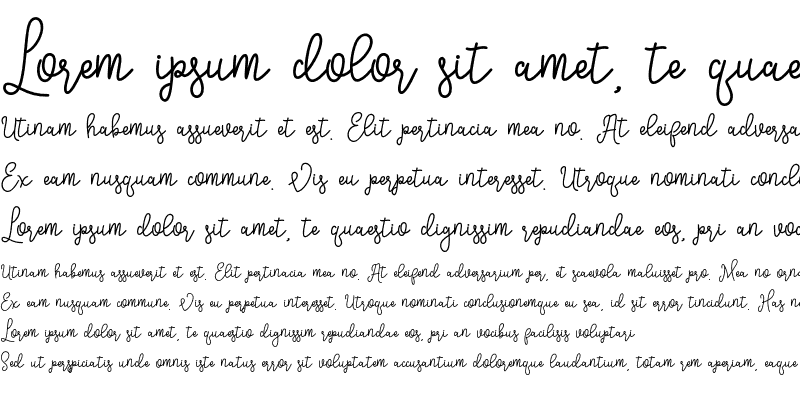 Lorem ipsum dolor sit amet, te quae
Utinam habemus assueverit et est. Elit pertinacia mea no. At eleifend adversa
Ex eam nusquam commune. Vis eu perpetua interesset. Utroque nominati conclu
Lorem ipsum dolor sit amet, te quaestio dignissim repudiandae eos, pri an voc
Utinam habemus assueverit et est. Elit pertinacia mea no. At eleifend adversarium per, et scaevola maluisset pro. Mea no orna
Ex eam nusquam commune. Vis eu perpetua interesset. Utroque nominati conclusionemque eu sea, id sit error tincidunt. Has no
Lorem ipsum dolor sit amet, te quaestio dignissim repudiandae eos, pri an vocibus facilisis voluptari
Sed ut perspiciatis unde omnis iste natus error sit voluptatem accusantium doloremque laudantium, totam rem aperiam, eaque